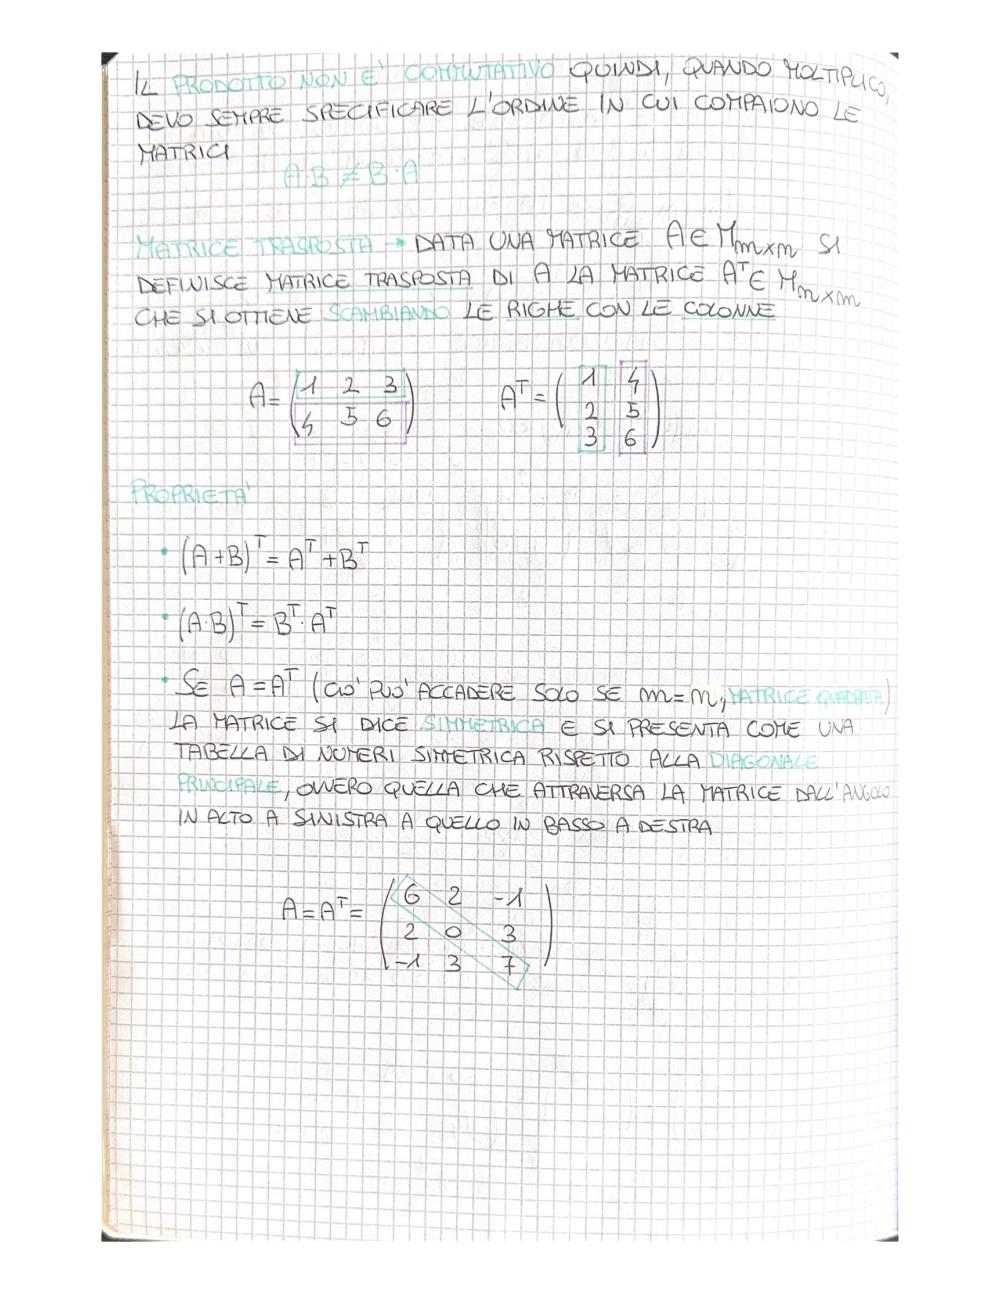 IL PRODOTTO NON E' COMMUTATIVO QUINDI, QUANDO MOLTIPLICO,
DEVO SEMPRE SPECIFICARE L'ORDINE IN CUI COMPAIONO LE
MATRICI
A·B ≠ B·A
MATRICE TRASPOSTA → DATA UNA MATRICE A ∈ Mm×n SI
DEFINISCE MATRICE TRASPOSTA DI A LA MATRICE Aᵀ ∈ Mn×m
CHE SI OTTIENE SCAMBIANDO LE RIGHE CON LE COLONNE
A= (1 2 3 Aᵀ= (1 4
4 5 6) 2 5
3 6)
PROPRIETA'
• (A+B)ᵀ = Aᵀ + Bᵀ
• (A·B)ᵀ = Bᵀ · Aᵀ
• SE A = Aᵀ (CIO' PUO' ACCADERE SOLO SE m=n, MATRICE QUADRATA)
LA MATRICE SI DICE SIMMETRICA E SI PRESENTA COME UNA
TABELLA DI NUMERI SIMMETRICA RISPETTO ALLA DIAGONALE
PRINCIPALE, OVVERO QUELLA CHE ATTRAVERSA LA MATRICE DALL'ANGOLO
IN ALTO A SINISTRA A QUELLO IN BASSO A DESTRA
A=Aᵀ= (6 2 -1
2 0 3
-1 3 7)